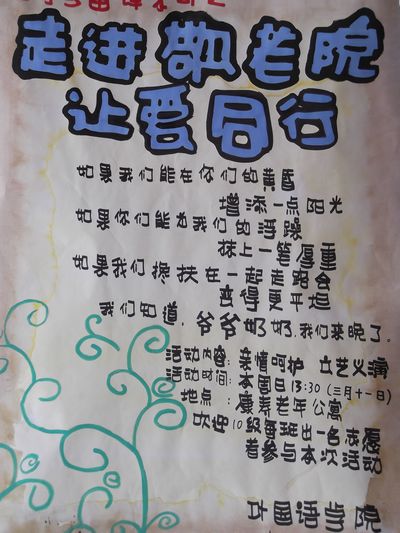 走进敬老院
让爱同行
如果我们能在你们的黄昏
增添一点阳光
如果你们能为我们的浮躁
抹上一笔厚重
如果我们搀扶在一起走路会
变得更平坦
我们知道,爷爷奶奶,我们来晚了。
活动内容:亲情呵护 立艺义演
活动时间:本周日13:30(三月十一日)
地点:康寿老年公寓
欢迎10级每班出一名志愿
者参与本次活动
外国语学院